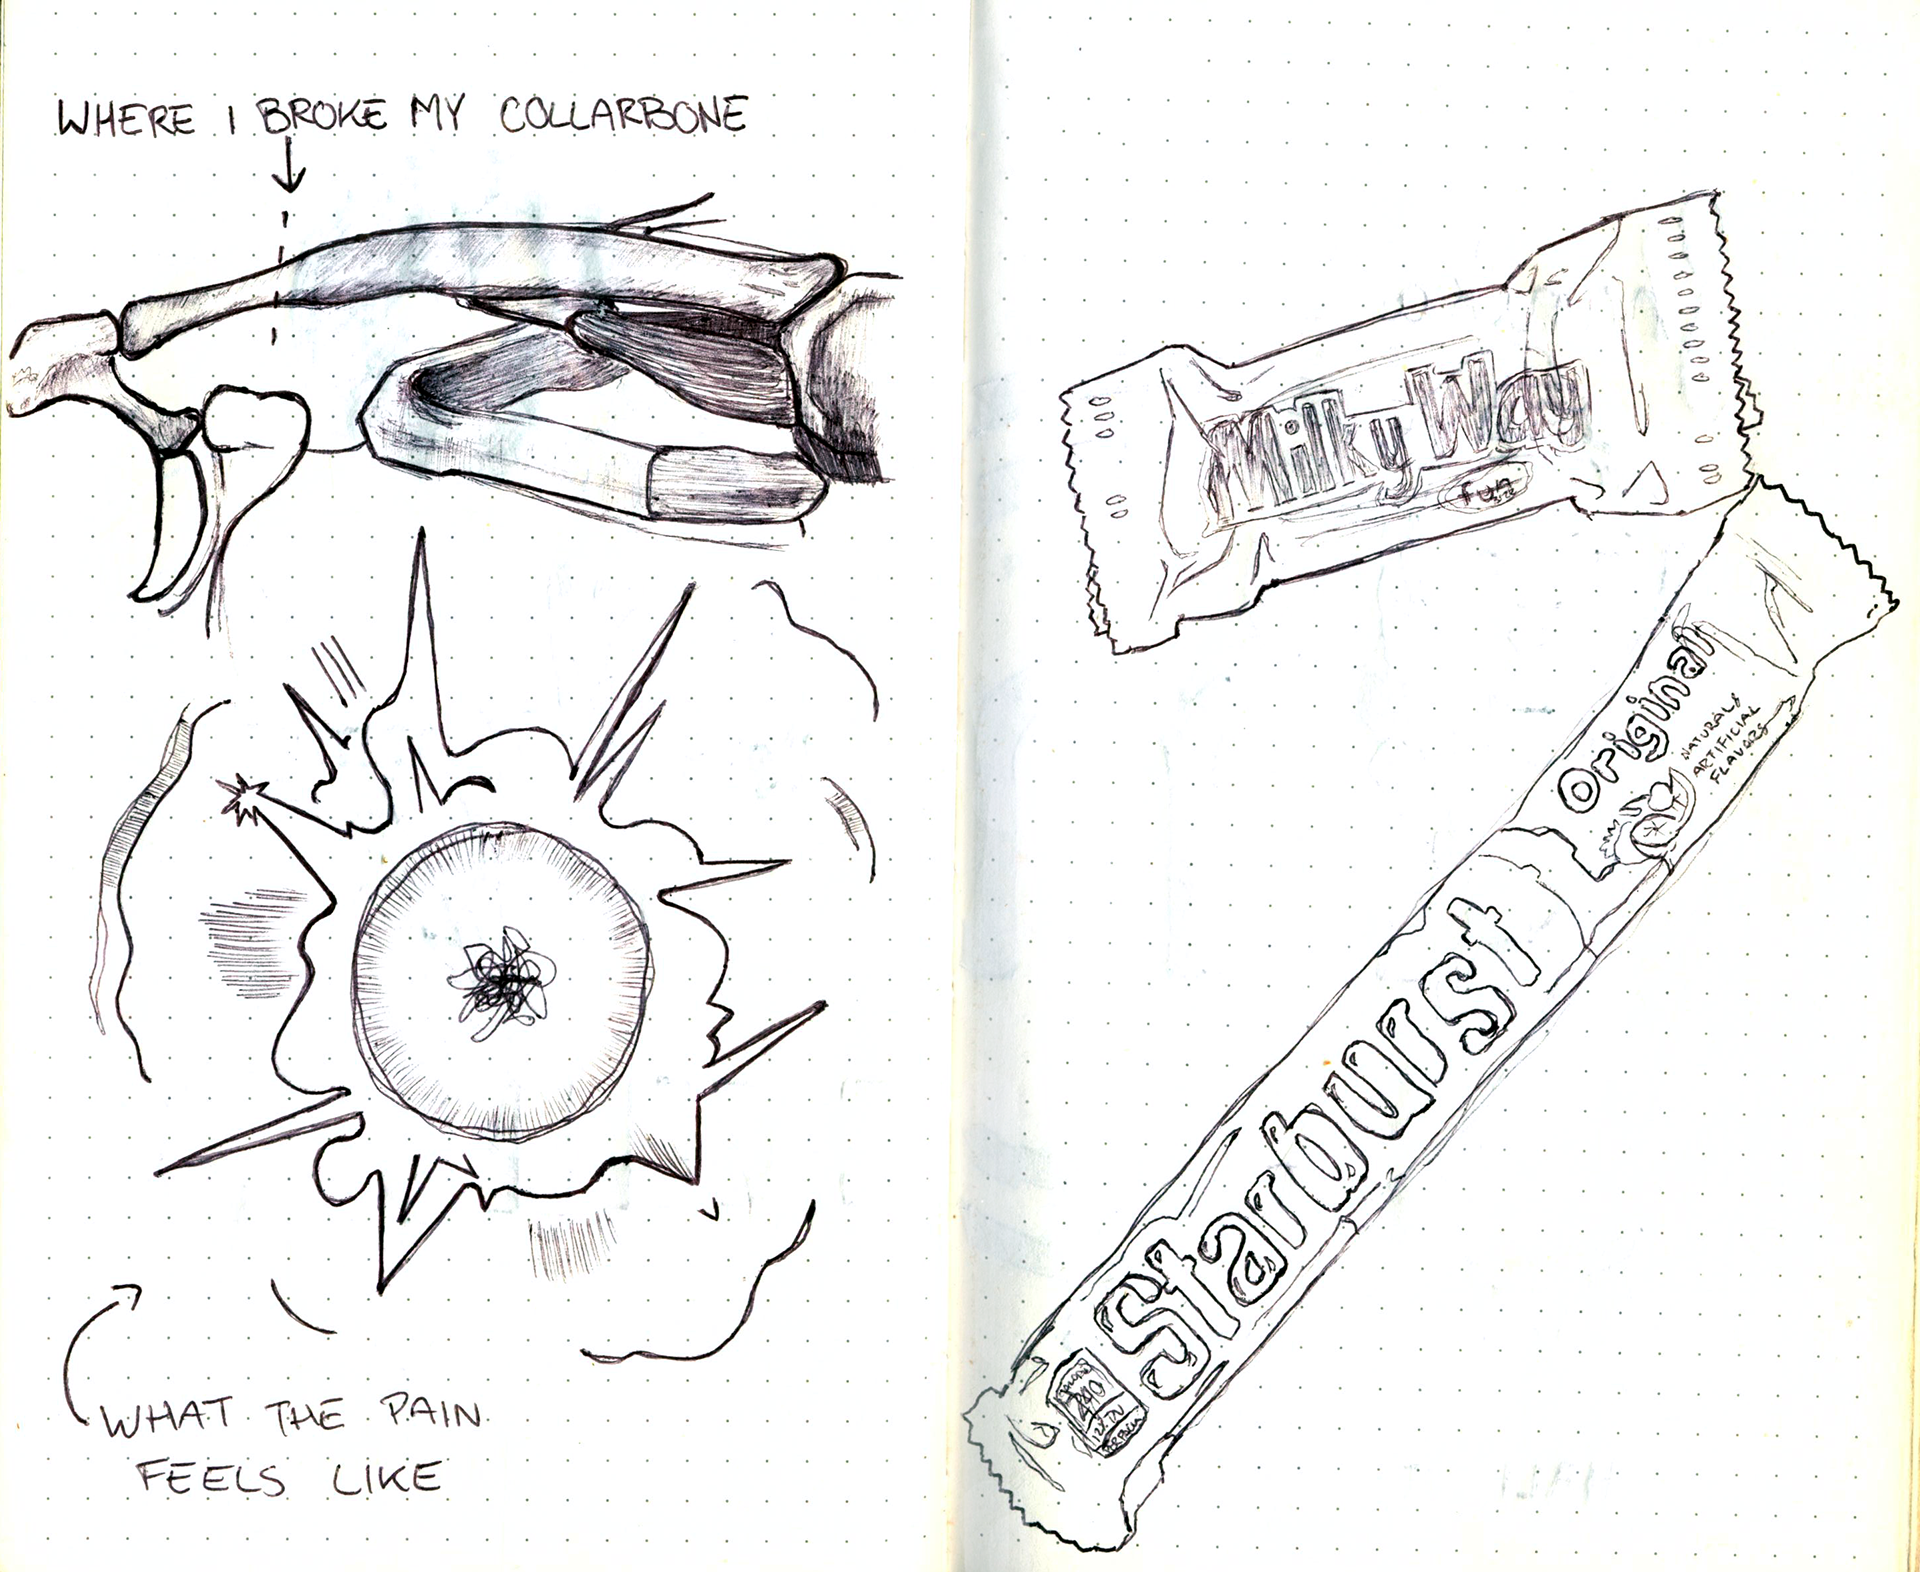 WHERE I BROKE MY COLLARBONE
WHAT THE PAIN
FEELS LIKE
Milky Way
fun
Original
NATURAL &
ARTIFICIAL
FLAVORS
Starburst
240
12% DV